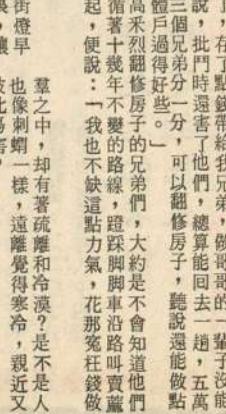 了，存了點錢帶給我兄弟，做哥哥的一輩子沒能
說，批鬥時還害了他們，總算能回去一趟，五萬
三個兄弟分一分，可以翻修房子，聽說還能做點
體戶過得好些。」
高米烈翻修房子的兄弟們，大約是不會知道他們
循著十幾年不變的路線，蹬踩腳脚車沿路叫賣薦
起，便說：「我也不缺這點力氣，花那寃枉錢做
街燈早
羣之中，却有著疏離和冷漠？是不是人
也像刺蝟一樣，遠離覺得寒冷，親近又
彼此傷害。